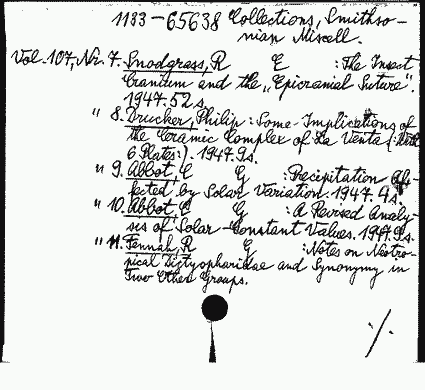 1183-65638 Collections, Smithso-
nian Miscell.
Vol. 107, Nr. 7. Snodgrass, R E : The Insect
Cranium and the „Epicranial Suture".
1947. 52 s.
" 8. Drucker, Philip : Some Implications of
the Ceramic Complex of La Venta (: With
6 Plates:). 1947. 9 s.
" 9. Abbot, C G : Precipitation Af-
fected by Solar Variation. 1947. 4 s.
" 10. Abbot, C G : A Revised Analy-
sis of Solar-Constant Values. 1947. 9 s.
" 11. Fennah, R G : Notes on Neotro-
pical Dictyopharidae and Synonymy in
Two Other Groups.
./.